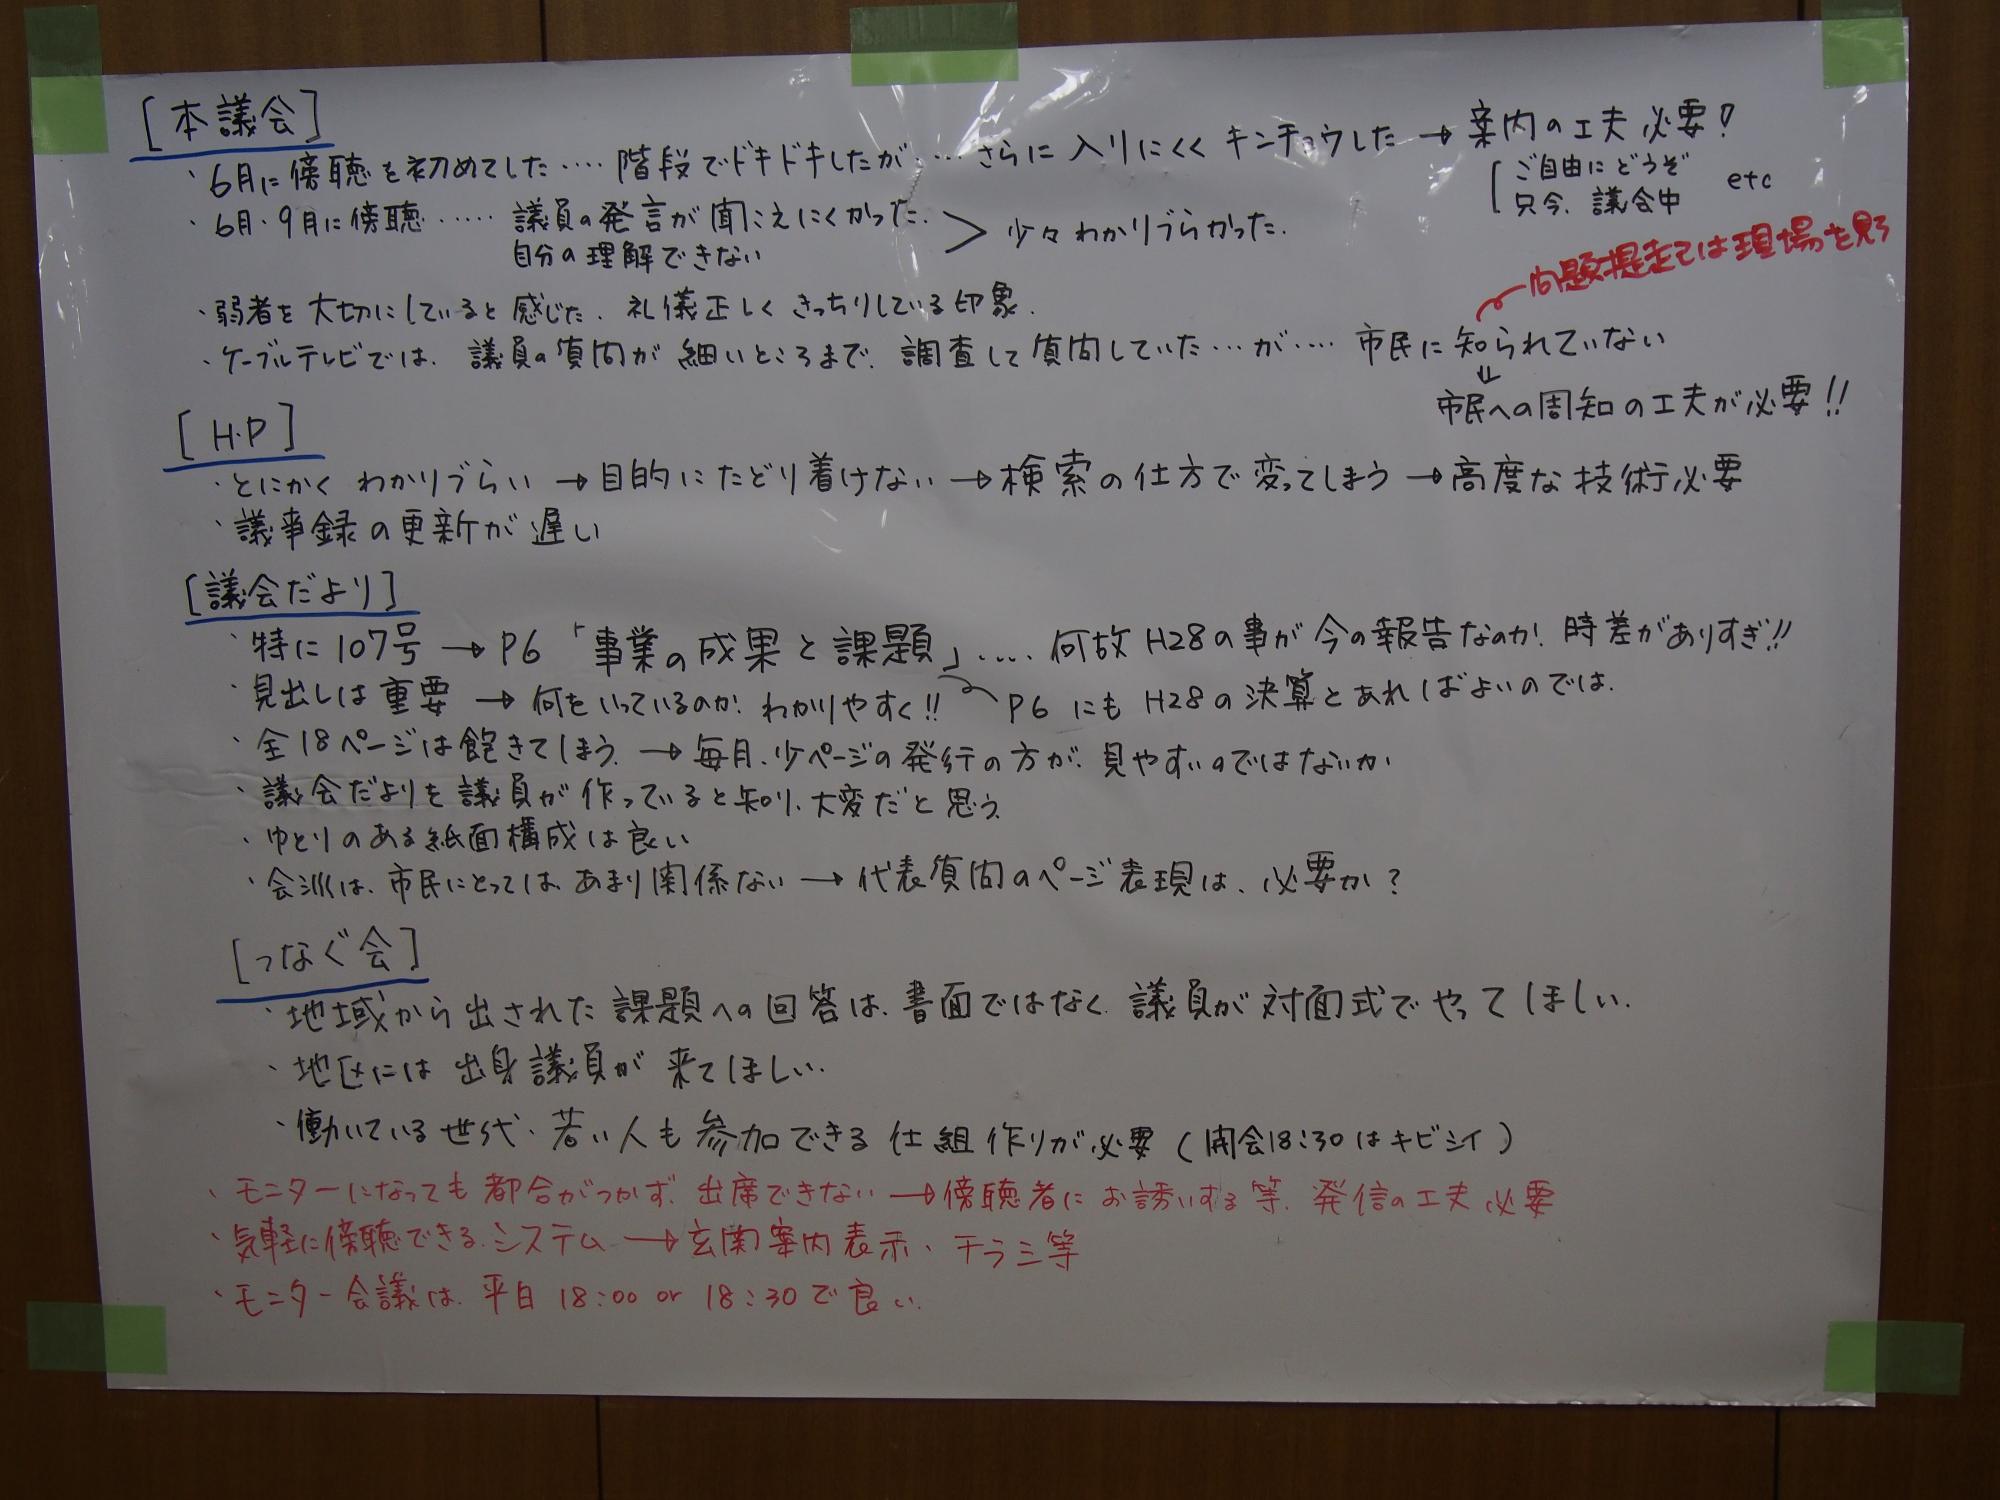 [本議会]
・6月に傍聴を初めてした‥‥階段でドキドキしたが‥‥さらに入りにくくキンチョウした→案内の工夫必要!
[ご自由にどうぞ
只今、議会中 etc
・6月・9月に傍聴‥‥‥議員の発言が聞こえにくかった.
自分の理解できない
> 少々わかりづらかった.
問題提起ては現場を見ろ
・弱者を大切にしていると感じた、礼儀正しくきっちりしている印象.
・ケーブルテレビでは、議員の質問が細いところまで、調査して質問していた‥‥が‥‥市民に知られていない
⇓
市民への周知の工夫が必要!!
[H・P]
・とにかくわかりづらい→目的にたどり着けない→検索の仕方で変ってしまう→高度な技術必要
・議事録の更新が遅い
[議会だより]
・特に107号→P6「事業の成果と課題」‥‥何故H28の事が今の報告なのか! 時差がありすぎ!!
・見出しは重要→何をいっているのか、わかりやすく!! P6にもH28の決算とあればよいのでは.
・全18ページは飽きてしまう.→毎月、少ページの発行の方が、見やすいのではないか
・議会だよりを議員が作っていると知り、大変だと思う.
・ゆとりのある紙面構成は良い
・会派は、市民にとっては、あまり関係ない→代表質問のページ表現は、必要か?
[つなぐ会]
・地域から出された課題への回答は、書面ではなく、議員が対面式でやってほしい.
・地区には出身議員が来てほしい.
・働いている世代・若い人も参加できる仕組作りが必要(開会18:30はキビシイ)
・モニターになっても都合がつかず、出席できない→傍聴者にお誘いする等、発信の工夫必要
・気軽に傍聴できる、システム→玄関案内表示、チラシ等
・モニター会議は、平日18:00 or 18:30で良い.